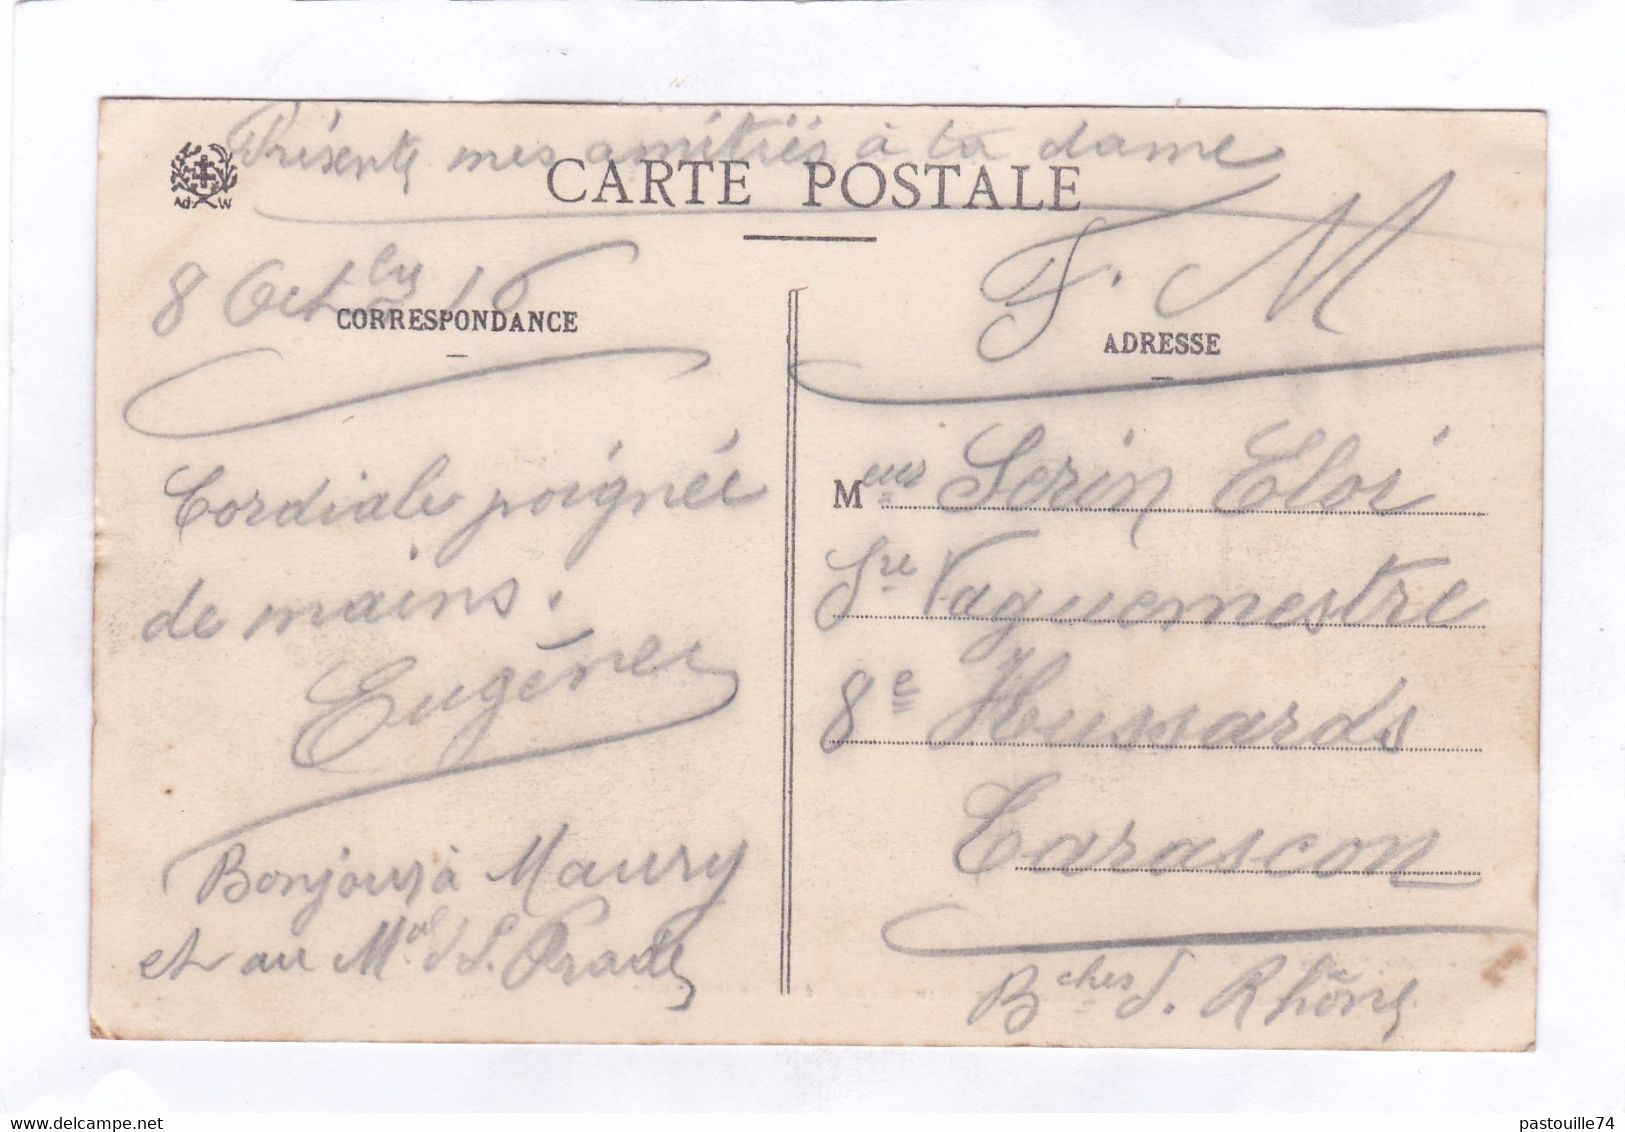 Présente mes amitiés à ta dame
CARTE POSTALE
Ad W
8 Octbre 16
CORRESPONDANCE
Cordiale poignée
de mains.
Eugène
Bonjour à Maury
et au Mal d L. Prade
F. M
ADRESSE
Meur Serin Eloi
Vaguemestre
8e Hussards
Tarascon
Bches d. Rhône
pastouille74